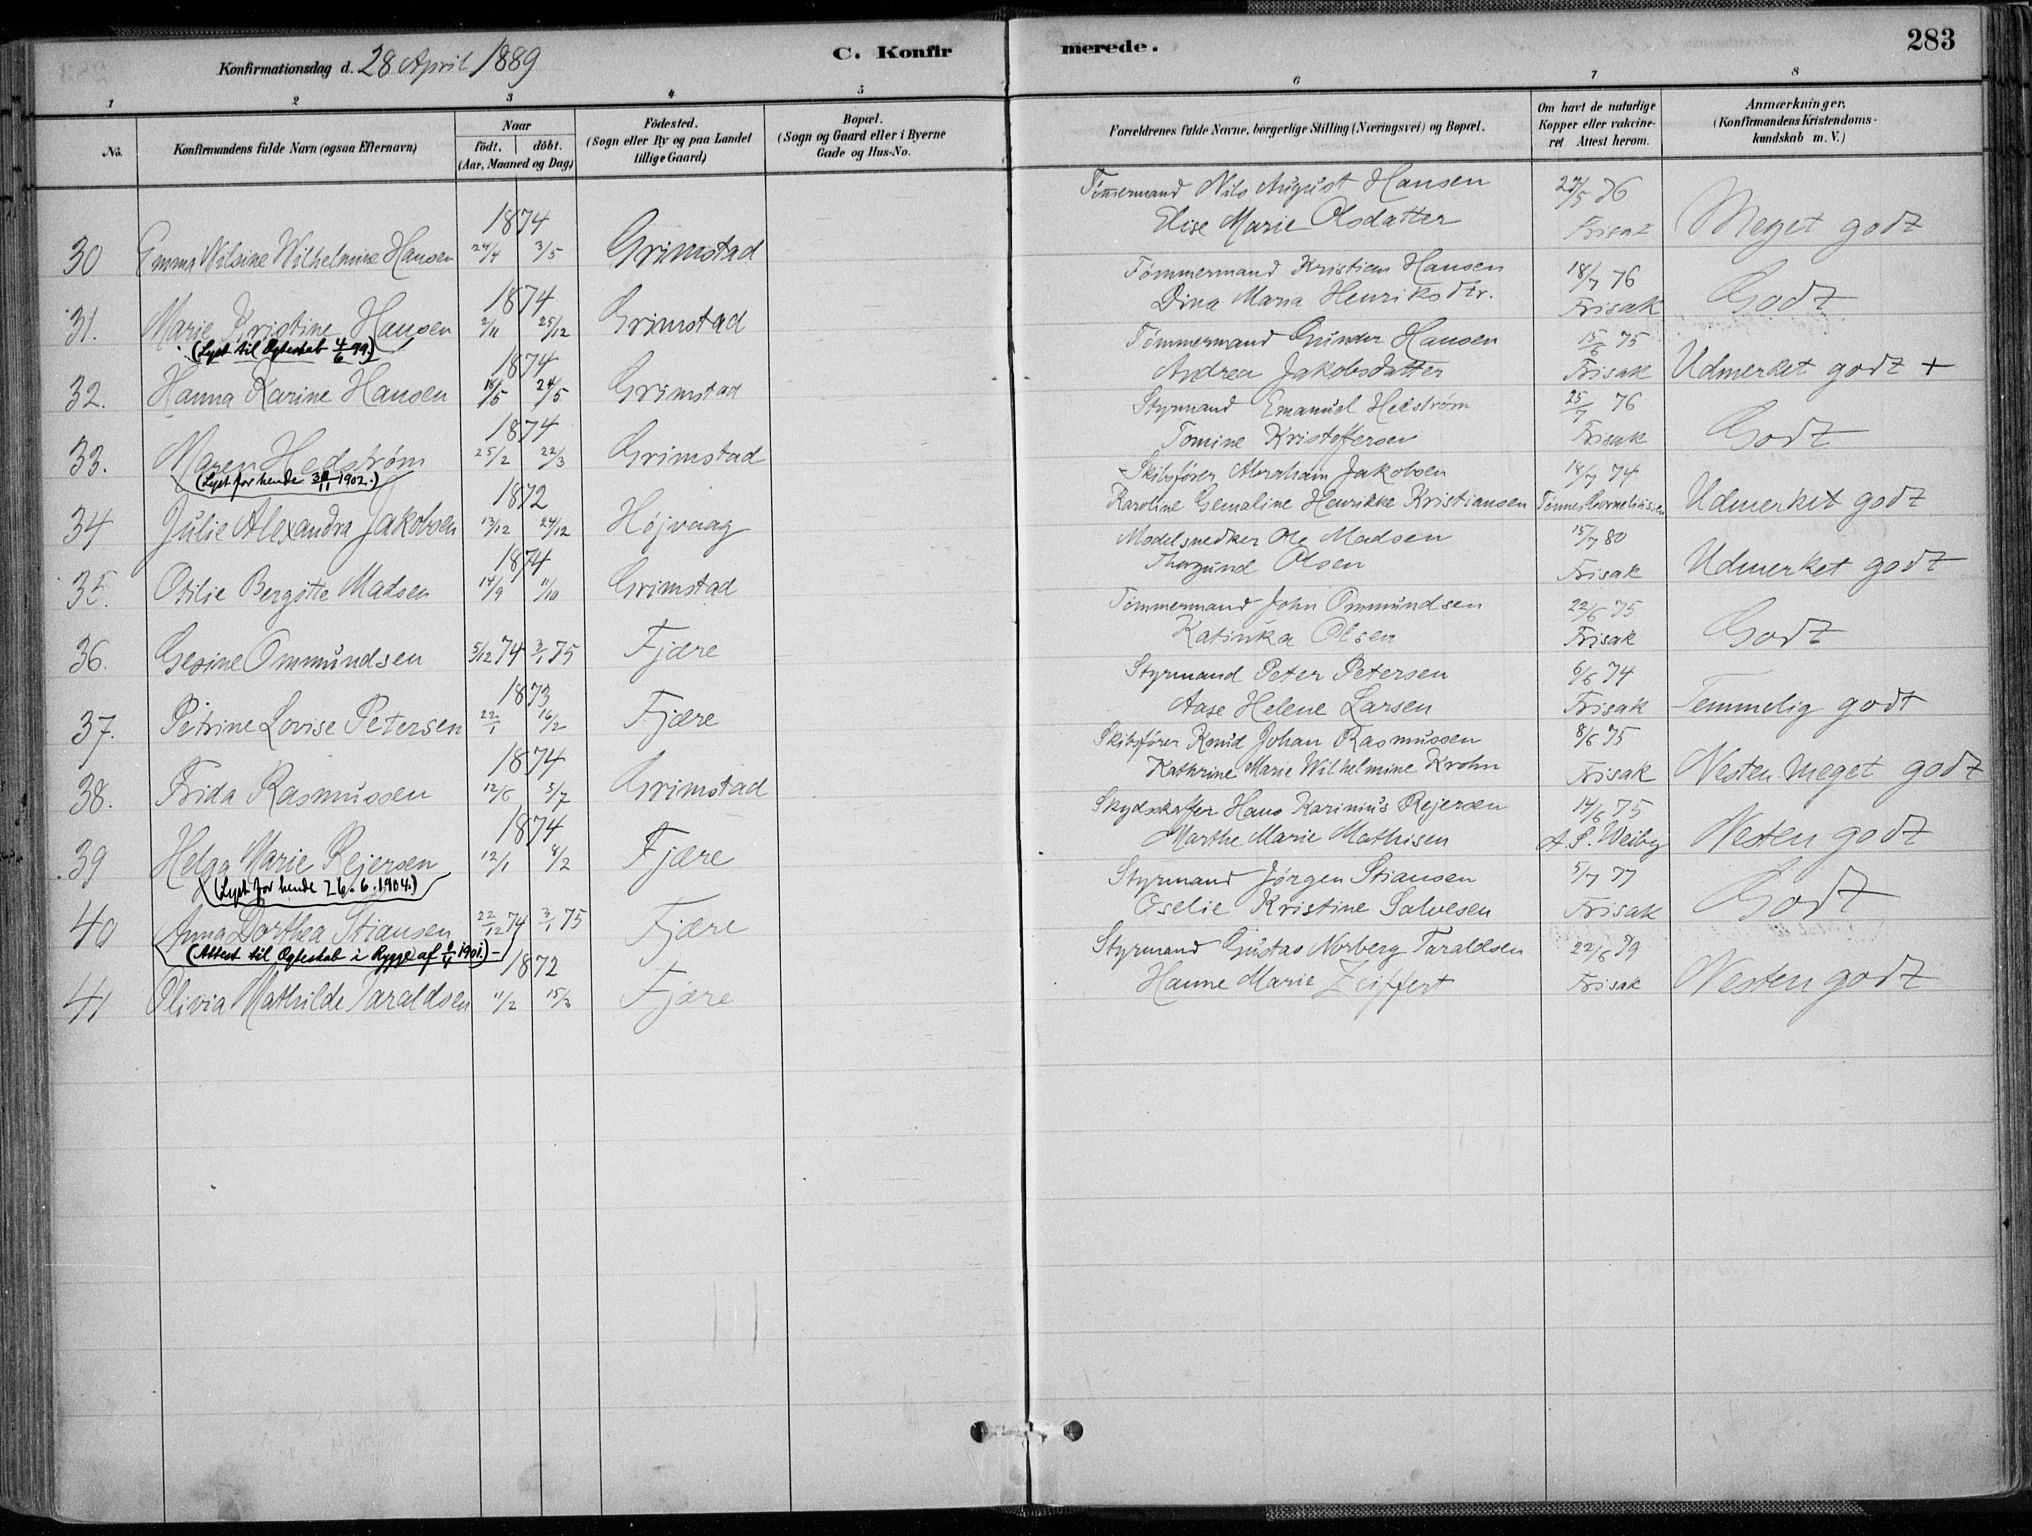 Konfirmationsdag d. 28 April 1889
C. Konfirmerede.
283
1 2 3 4 5 6 7 8
No.
Konfirmandens fulde Navn (ogsaa Efternavn)
Naar
födt. döbt.
(Aar, Maaned og Dag)
Födested.
(Sogn eller By og paa Landet
tillige Gaard)
Bopæl.
(Sogn og Gaard eller i Byerne
Gade og Hus-No.
Forældrenes fulde Navne, borgerlige Stilling (Næringsvei) og Bopæl.
Om havt de naturlige
Kopper eller vakcine-
ret. Attest herom.
Anmærkninger.
(Konfirmandens Kristendoms-
kundskab m. V.)
Tömmermand Nils August Hansen 24/5 76
1874 Elise Marie Olsdatter Frisak Meget godt
30 Emma Nilsine Wilhelmine Hansen 24/4 3/5 Grimstad
Tömmermand Kristian Hansen 18/7 76
1874 Dina Maria Henriksdtr. Frisak Godt
31. Marie Kristine Hansen 2/11 25/12 Grimstad
(Lyst til Ægteskab 4/6 99.)
Tömmermand Gunder Hansen 15/6 75
1874 Andrea Jakobsdatter Frisak Udmerket godt +
32. Hanna Karine Hansen 18/5 24/5 Grimstad
Styrmand Emanuel Hedström 25/7 76
1874 Tomine Kristoffersen Frisak Godt
33. Maren Hedström 25/2 22/3 Grimstad
(Lyst for hende 30/11 1902.)
Skibsfører Abraham Jakobsen 18/7 74
1872 Karoline Gemaline Henrikke Kristiansen Tønnes Corneliussen Udmerket godt
34 Julie Alexandra Jakobsen 13/12 24/12 Højvaag
Modelsnedker Ole Madsen 15/7 80
1874 Thorgund Olsen Frisak Udmerket godt
35. Otilie Bergitte Madsen 14/9 11/10 Grimstad
Tömmermand John Ommundsen 22/6 75
Katinka Olsen Frisak Godt
36. Gesine Ommundsen 5/12 74 3/1 75 Fjære
Styrmand Peter Petersen 6/6 74
1873 Aase Helene Larsen Frisak Temmelig godt
37. Petrine Lovise Petersen 22/1 16/2 Fjære
Skibsfører Knud Johan Rasmussen 8/6 75
1874 Kathrine Marie Wilhelmine Krohn Frisak Nesten Meget godt
38. Frida Rasmussen 12/6 5/7 Grimstad
Skydskaffer Hans Karinius Rejersen 14/6 75
1874 Marthe Marie Mathisen A. S. Weiby Nesten godt
39 Helga Marie Rejersen 12/1 8/2 Fjære
(Lyst for hende 26.6.1904.)
Styrmand Jörgen Stiansen 5/7 77
Oselie Kristine Salvesen Frisak Godt
40 Anna Dorthea Stiansen 22/12 74 3/1 75 Fjære
(Attest til Ægteskab i Rygge af 1/4 1901.)
Styrmand Gustav Norberg Taraldsen 22/6 79
1872 Hanne Marie Zeiffert Frisak Nesten godt
41 Olivia Mathilde Taraldsen 11/2 15/3 Fjære